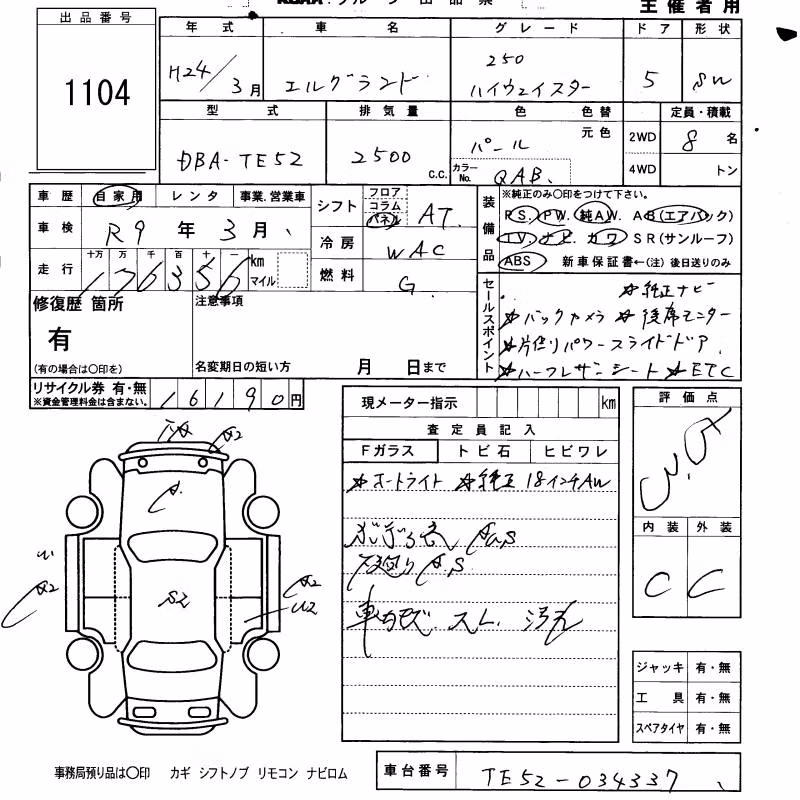 主催者用
出品番号
1104
年式 車名 グレード ドア 形状
H24/3月 エルグランド 250 ハイウェイスター 5 SW
型式 排気量 色 色替 元色 定員・積載
DBA-TE52 2500 C.C. パール カラーNo. QAB 2WD 4WD 8名 トン
車歴 自家用 レンタ 事業.営業車
車検 R9年3月
走行 十万 万 千 百 十 一
176356 km マイル
シフト フロア コラム パネル AT
冷房 WAC
燃料 G
装備品 ※純正のみ〇印をつけて下さい。
P.S. P.W. 純A.W. A.B(エアバック)
T.V. ナビ. カワ S R(サンルーフ)
ABS 新車保証書←(注)後日送りのみ
セールスポイント
☆純正ナビ
☆バックカメラ ☆後席モニター
☆片側パワースライドドア
☆ハーフレザーシート ☆ETC
修復歴 箇所
有
(有の場合は〇印を)
注意事項
名変期日の短い方 月 日まで
リサイクル券 有・無
※資金管理料金は含まない。
16190円
現メーター指示 km
査定員記入
Fガラス トビ石 ヒビワレ
☆オートライト ☆純正18インチAW
A.S
下廻りA.S
車内 スレ. 汚れ
評価点
内装 外装
C C
A2
A
A2
S2
A2
U2
ジャッキ 有・無
工具 有・無
スペアタイヤ 有・無
事務局預り品は〇印 カギ シフトノブ リモコン ナビロム
車台番号 TE52-034337